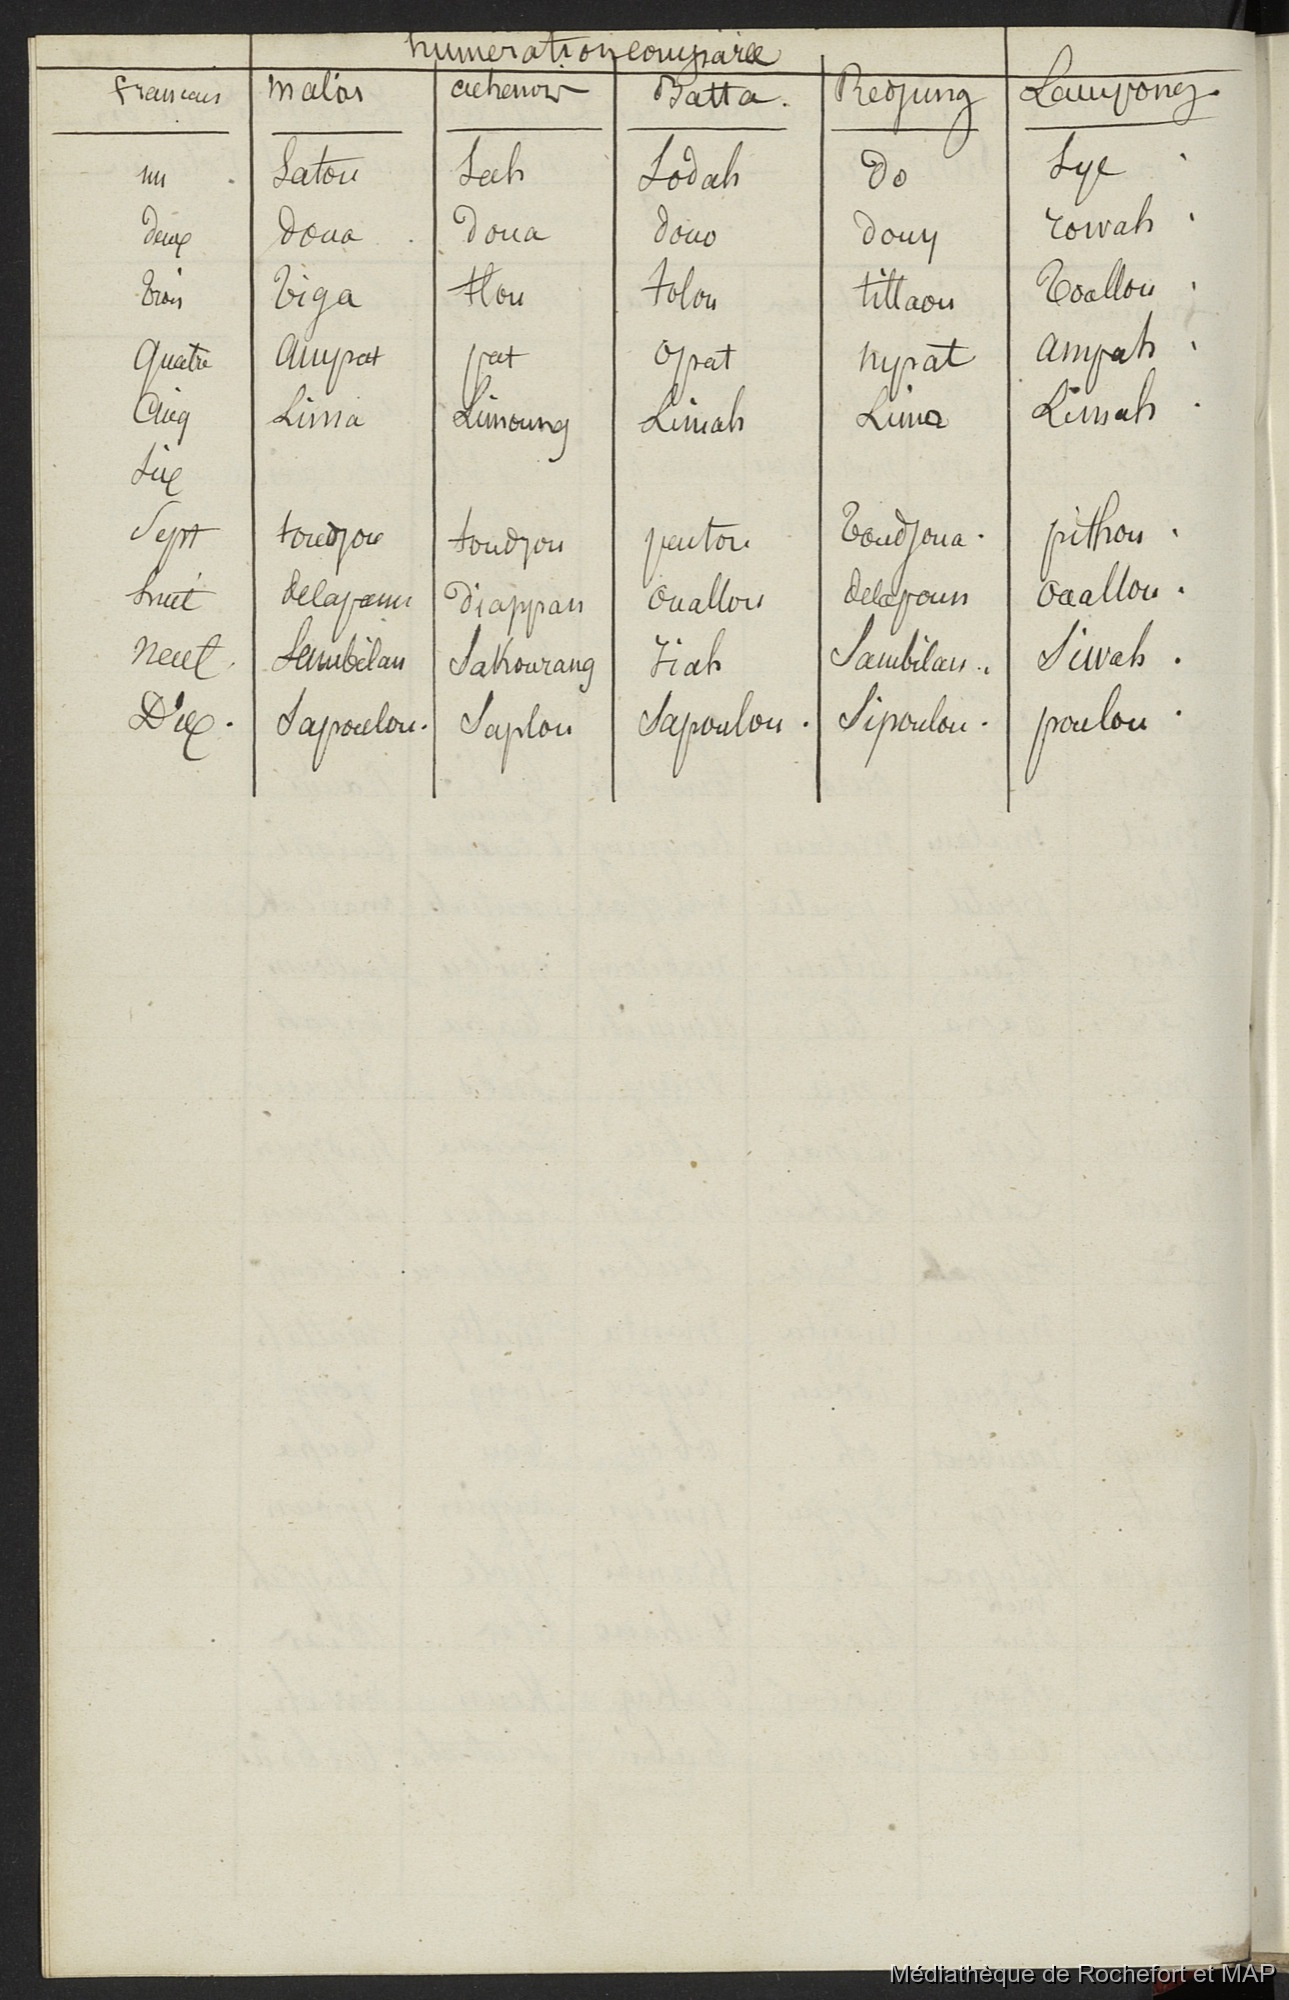 numération comparée
français malais achenois Batta. Redjung Lampong.
un Satou Sah Sodah Do Sye
Deux doua Doua douo douy rowah
trois tiga tlou tolou tillaou toallou
quatre ampat pat opat nypat ampah
Cinq Lima Limoung Limah Lima Limah
Six
Sept toudjou toudjou peutou toudjoua pithou
huit delapann diappan ouallou delapoun ouallou
neuf Sambilan Sakourang Siah Sambilan Siwah
Dix Sapoulou Saplou Sapoulou Sipoulou poulou
Médiathèque de Rochefort et MAP